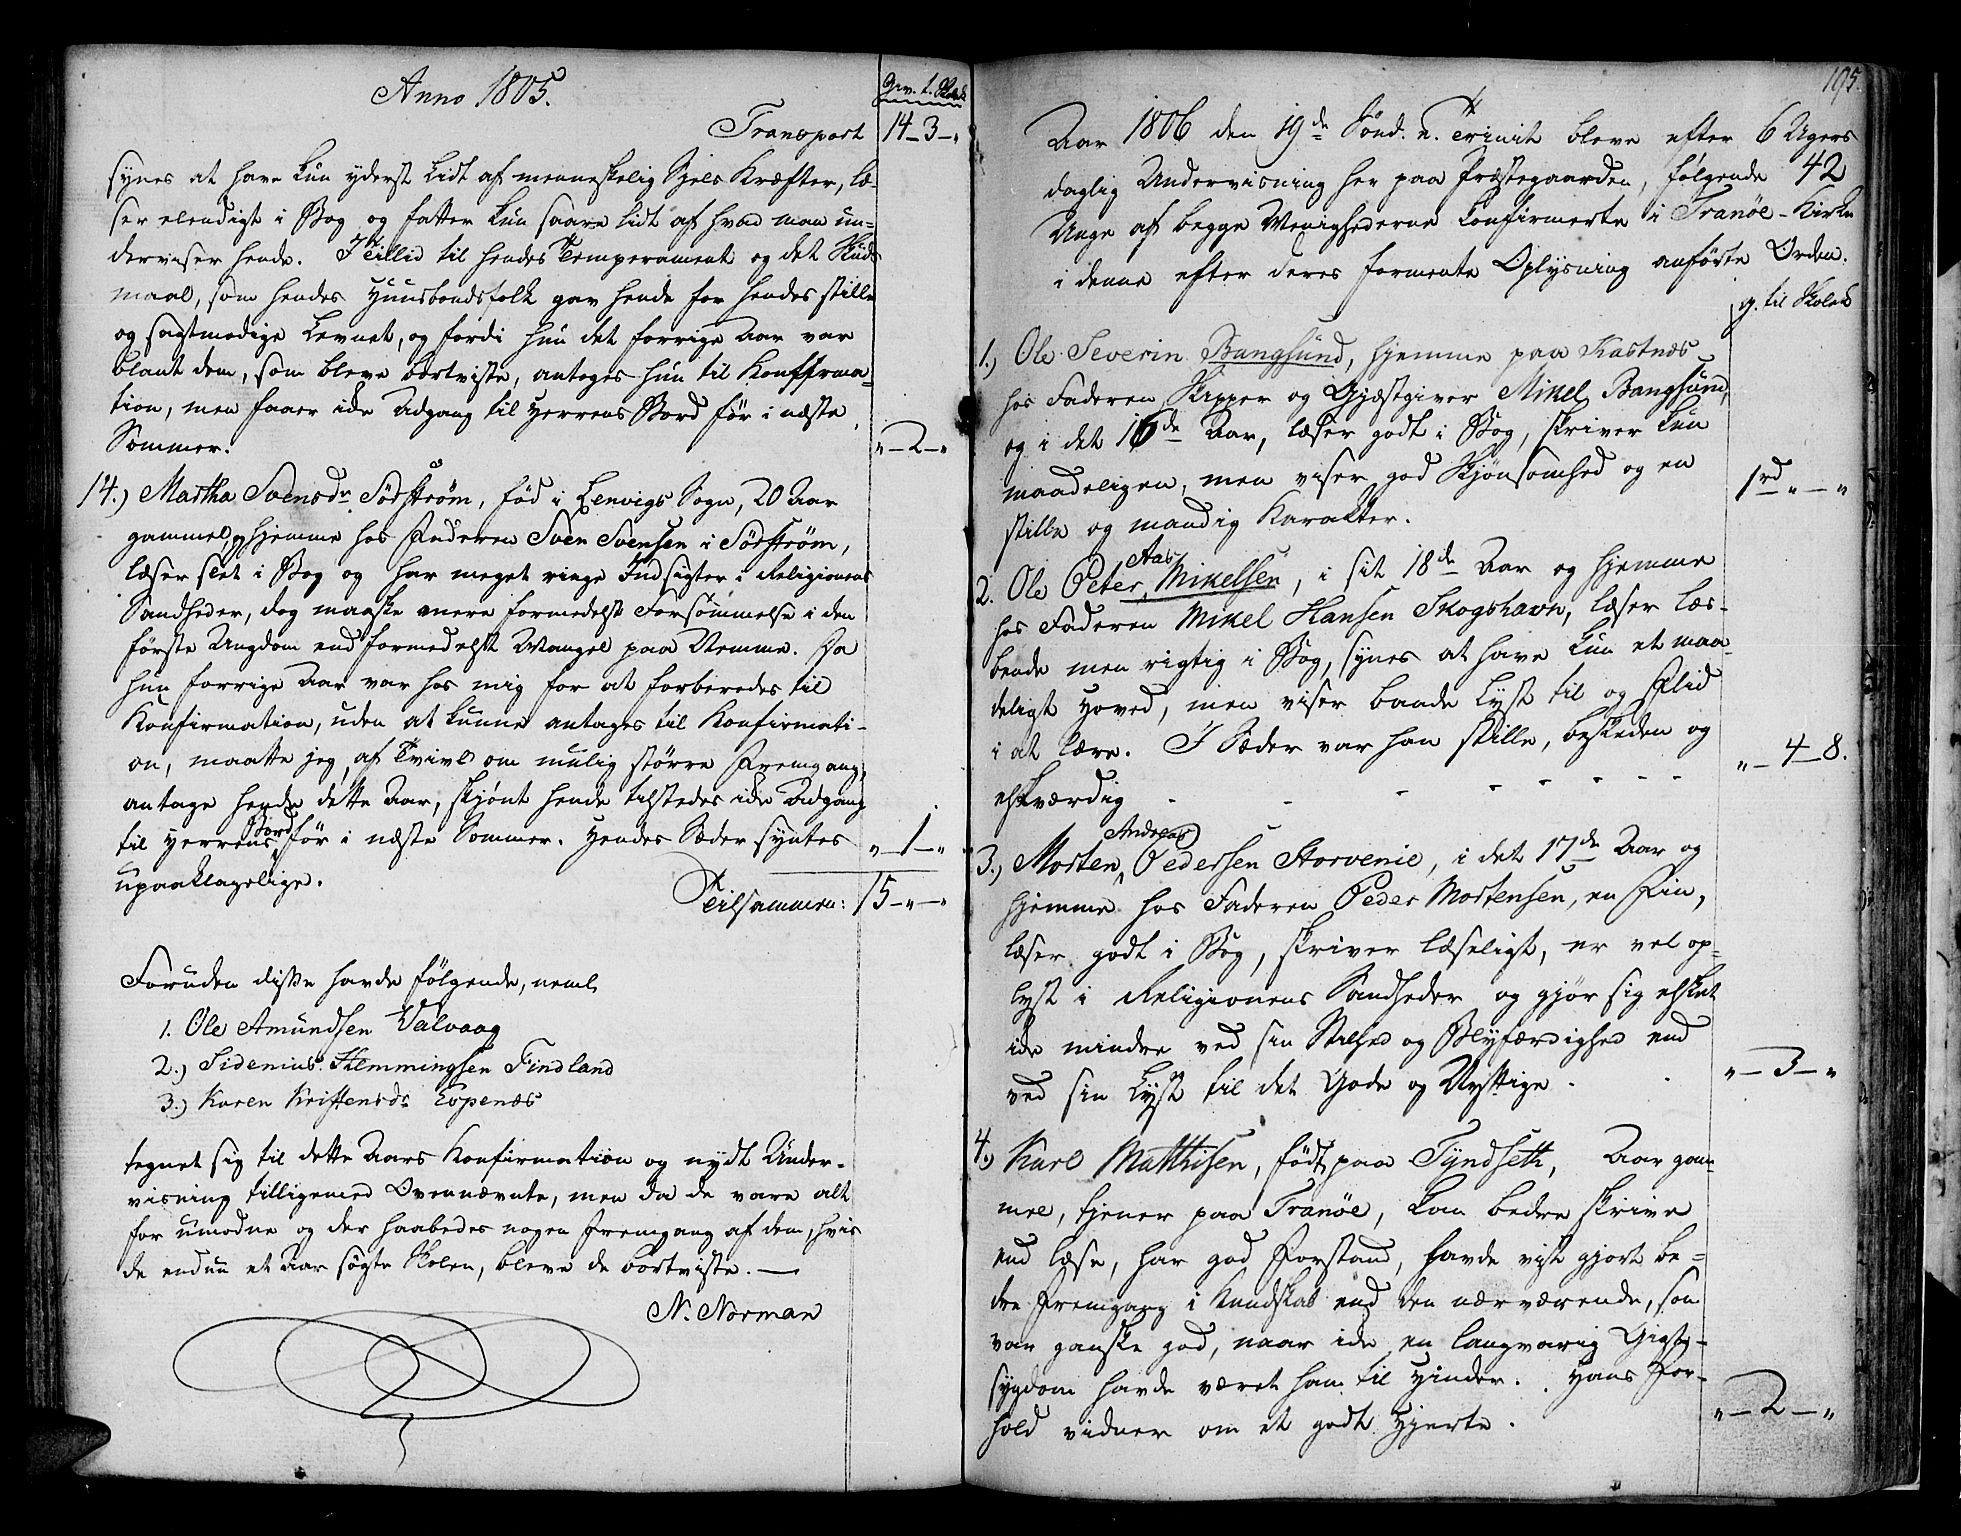 Anno 1805.
Gev. t. Skolek
Transport 14-3-"
synes at have kun yderst lidt af menneskelig Sjels Kræfter, læ-
ser elendigt i Bog og fatter kun saare lidt af hvad man un-
derviser hende. I Tillid til hendes Temperament og det Skuds
maal, som hendes Huusbondsfolk gav hende for hendes stille
og sagtmodige Levnet, og fordi hun det forrige Aar var
blant dem, som bleve bortviste, antoges hun til Konfirma-
tion, men faaer ide Adgang til Herrens Bord før i næste
Sommer. "-2-"
14.) Martha Svensdr Sörstrøm, fød i Lenvigs Sogn, 20 Aar
gammel, og hjemme hos Faderen Sven Svensen i Sörstrøm,
læser slet i Bog og har meget ringe Indsigter i Religionens
Sandheder, dog maaske mere formedelst Forsømmelse i den
første Ungdom end formedelst Mangel paa Nemme. Da
hun forrige Aar var hos mig for at forberedes til
Konfirmation, uden at kunne antages til Konfirmati-
on, maatte jeg, af Tvivl om mulig større Fremgang,
antage hende dette Aar, skjönt hende tilstedes ide Adgang
til Herrens Bord før i næste Sommer. Hendes Sæder syntes "-1-"
upaaklagelige.
Tilsammen: 15-"-"
Foruden disse havde følgende, neml.
1. Ole Amundsen Valvaag
2.) Sidenius Hemmingsen Findland
3.) Karen Kristensdr Espenæs
tegnet sig til dette Aars Konfirmation og nydt Under-
visning tilligemed Ovennævnte, men da de vare alt
for umodne og der haabedes nogen Fremgang af dem, hvis
de endnu et Aar søgte Skolen, bleve de bortviste. —
N. Norman
195.
Aar 1806 den 19de Sönd. e. Trinit bleve efter 6 Ugers
daglig Undervisning her paa Præstegaarden, følgende 42
Unge af begge Menighederne Konfirmerte i Tranöe-Kirke
i denne efter deres formente Oplysning anförte Orden.
g. til Skolek
1.) Ole Severin Bangsund, hjemme paa Kastnæs
hos Faderen Skipper og Gjæstgiver Mikel Bangsund,
og i det 16de Aar, læser godt i Bog, skriver kun
maadeligen, men viser god Skjönsomhed og en 1rd"-"
stille og mandig Karakter.
2. Ole Peter Aas Mikelsen, i sit 18de Aar og hjemme
hos Faderen Mikel Hansen Skogshavn, læser læs-
bende men rigtig i Bog, synes at have kun et maa-
deligt Hoved, men viser baade Lyst til og Flid
i at lære. I Sæder var han stille, beskeden og "-4-8.
elskværdig
3.) Morten Andreas Pedersen Storvenie, i det 17de Aar og
hjemme hos Faderen Peder Mortensen, en Fin,
læser godt i Bog, skriver læseligt, er vel op-
lyst i Religionens Sandheder og gjør sig elsket
ide mindre ved sin Stilhed og Blyfærdighed end
ved sin Lyst til det Gode og Nyttige. "-3-"
4.) Karl Matthisen, født paa Tyndseth, Aar gam-
mel, tjener paa Tranöe, kan bedre skrive
end læse, har god Forstand, havde vist gjort be-
dre Fremgang i Kundskab end den nærværende, som
var ganske god, naar ide en langvarig Gigt-
sygdom havde været ham til Hinder. Hans For-
hold vidner om et godt Hjerte. "-2-"